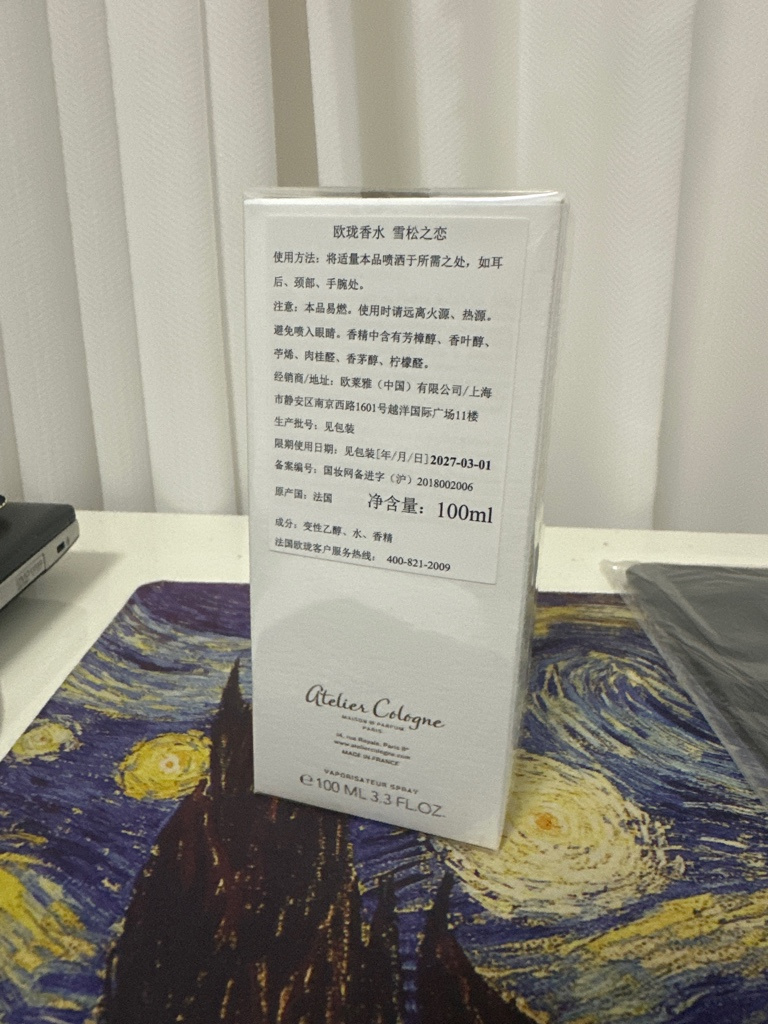 欧珑香水 雪松之恋
使用方法：将适量本品喷洒于所需之处，如耳
后、颈部、手腕处。
注意：本品易燃。使用时请远离火源、热源。
避免喷入眼睛。香精中含有芳樟醇、香叶醇、
苧烯、肉桂醛、香茅醇、柠檬醛。
经销商/地址：欧莱雅（中国）有限公司/上海
市静安区南京西路1601号越洋国际广场11楼
生产批号：见包装
限期使用日期：见包装[年/月/日]2027-03-01
备案编号：国妆网备进字（沪）2018002006
原产国：法国 净含量：100ml
成分：变性乙醇、水、香精
法国欧珑客户服务热线： 400-821-2009
Atelier Cologne
MAISON DE PARFUM
PARIS
14, rue Royale, Paris 8e
www.ateliercologne.com
MADE IN FRANCE
VAPORISATEUR SPRAY
℮ 100 ML 3.3 FL.OZ.